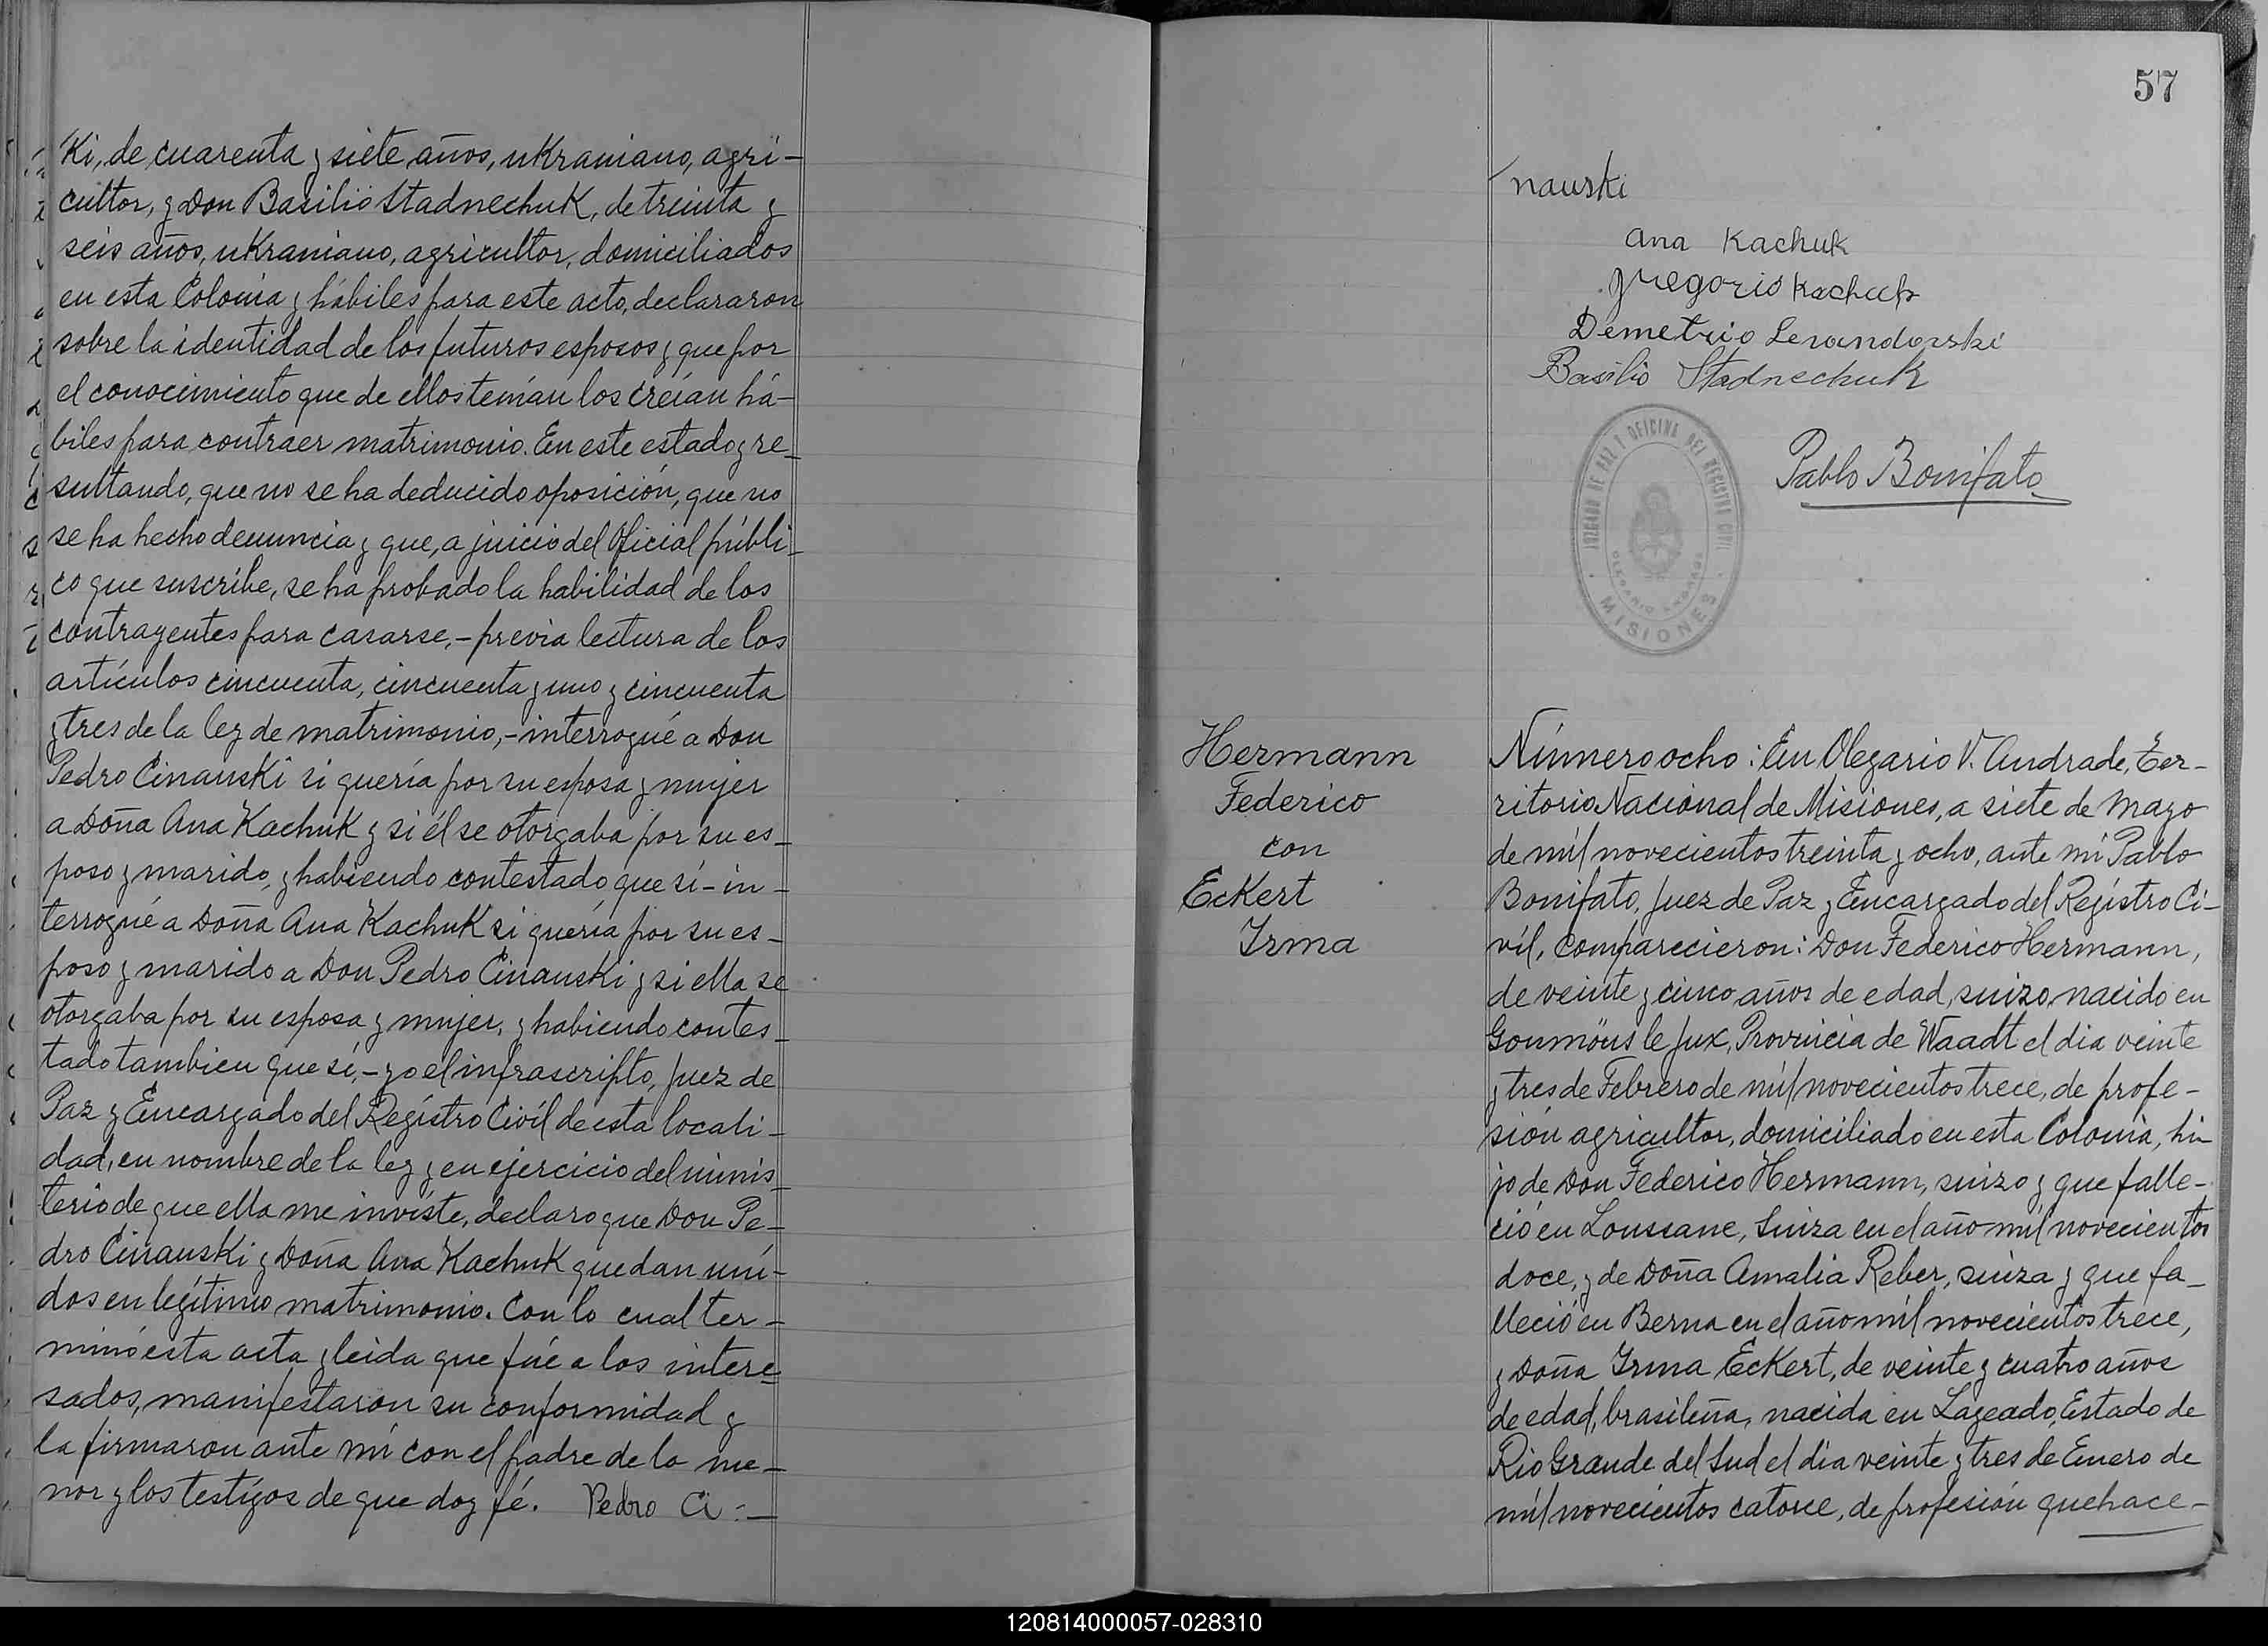 Ki, de cuarenta y siete años, uKraniano, agri-
cultor, y Don Basilio StadnechuK, de treinta y
seis años, uKraniano, agricultor, domiciliados
en esta Colonia y hábiles para este acto, declararon
sobre la identidad de los futuros esposos y que por
el conocimiento que de ellos tenían los creían há-
biles para contraer matrimonio. En este estado y re-
sultando, que no se ha deducido oposición, que no
se ha hecho denuncia y que, a juicio del Oficial públi-
co que suscribe, se ha probado la habilidad de los
contrayentes para casarse,- previa lectura de los
artículos cincuenta, cincuenta y uno y cincuenta
y tres de la ley de matrimonio,- interrogué a Don
Pedro CinausKi si quería por su esposa y mujer
a Doña Ana KachuK y si él se otorgaba por su es-
poso y marido, y habiendo contestado que sí- in-
terrogué a Doña Ana KachuK si quería por su es-
poso y marido a Don Pedro CinausKi y si ella se
otorgaba por su esposa y mujer, y habiendo contes-
tado tambien que sí,- yo el infrascripto, Juez de
Paz y Encargado del Regístro Civíl de esta locali-
dad, en nombre de la ley y en ejercicio del minis-
terio de que ella me invíste, declaro que Don Pe-
dro CinausKi y Doña Ana KachuK quedan uni-
dos en legítimo matrimonio. Con lo cual ter-
minó esta acta y leida que fué a los intere-
sados, manifestaron su conformidad y
la firmaron ante mí con el padre de la me-
nor y los testígos de que doy fé. Pedro Ci:-
57
nauski
Ana Kachuk
Gregorio Kachuk
Demetrio Levandovski
Basilio Stadnechuk
Pablo Bonifato
JUZGADO DE PAZ Y OFICINA DEL REGISTRO CIVIL
OLEGARIO ANDRADE
MISIONES
Hermann
Federico
con
EcKert
Irma
Número ocho: En Olegario V. Andrade, Ter-
ritorio Nacional de Misiones, a siete de Mayo
de mil novecientos treinta y ocho, ante mí Pablo
Bonifato, Juez de Paz y Encargado del Regístro Ci-
víl, comparecieron: Don Federico Hermann,
de veinte y cinco años de edad, suizo, nacido en
Goumöus le Jux, Provincia de Waadt el dia veinte
y tres de Febrero de mil novecientos trece, de profe-
sión agricultor, domiciliado en esta Colonia, hi
jo de Don Federico Hermann, suizo y que falle-
ció en Loussane, Suiza en el año mil novecientos
doce, y de Doña Amalia Reber, suiza y que fa-
lleció en Berna en el año mil novecientos trece,
y Doña Irma EcKert, de veinte y cuatro años
de edad, brasileña, nacida en Lageado, Estado de
Rio Grande del Sud el dia veinte y tres de Enero de
mil novecientos catorce, de profesión quehace-
120814000057-028310